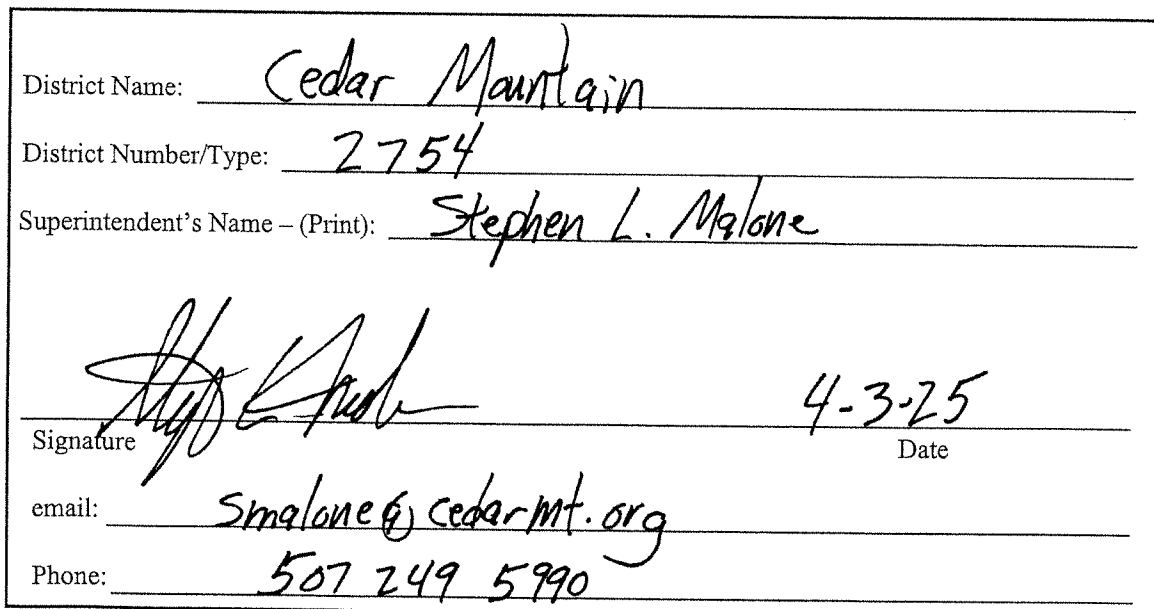 District Name: Cedar Mountain
District Number/Type: 2754
Superintendent's Name – (Print): Stephen L. Malone
4-3-25
Signature Date
email: smalone@cedarmt.org
Phone: 507 249 5990